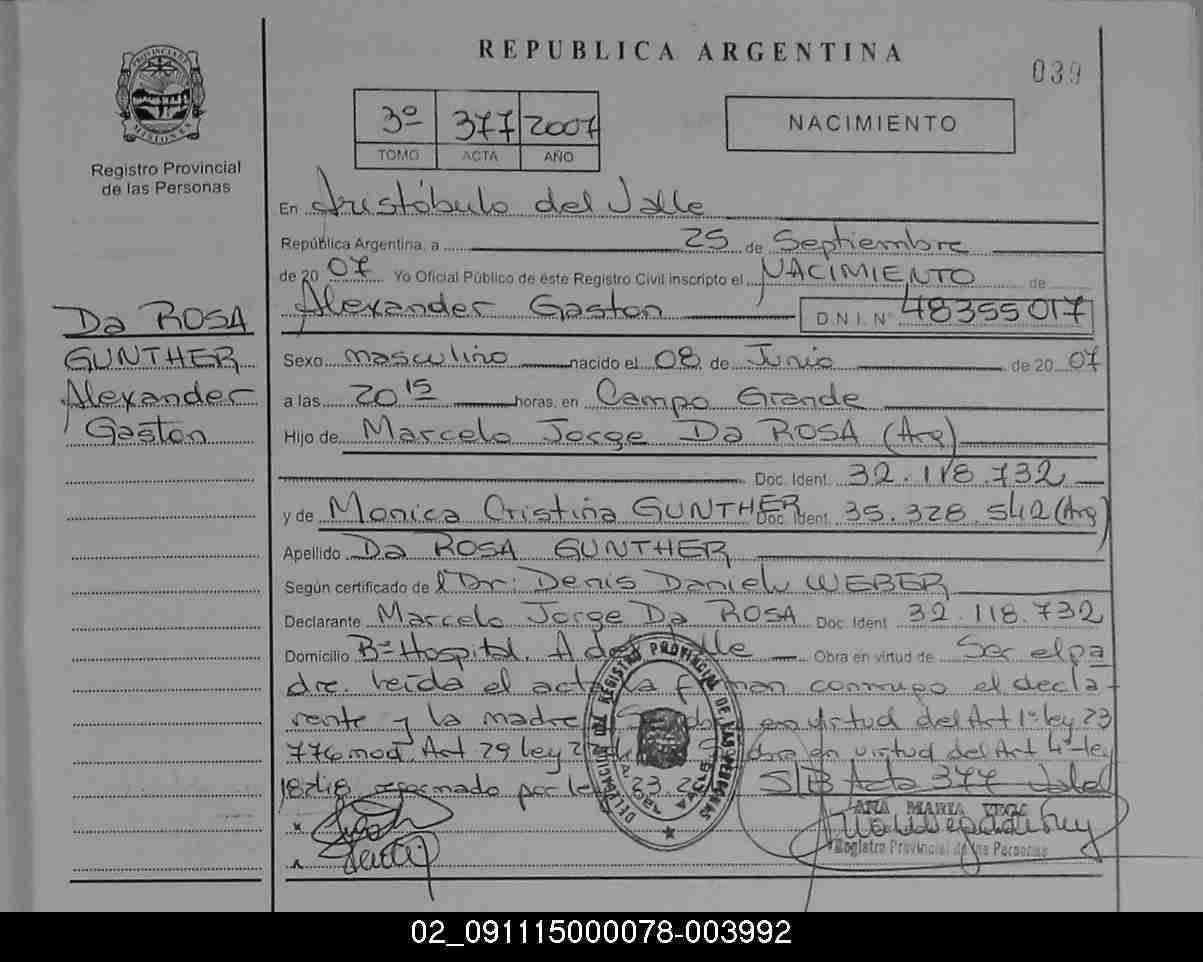 REPUBLICA ARGENTINA
039
PROVINCIA DE MISIONES
Registro Provincial
de las Personas
3º 377 2007
TOMO ACTA AÑO
NACIMIENTO
En Aristóbulo del Valle
República Argentina, a 25 de Septiembre
de 20 07 Yo Oficial Público de éste Registro Civil inscripto el NACIMIENTO de
Alexander Gaston D.N.I. Nº 48355017
Da ROSA
GUNTHER
Alexander
Gaston
Sexo masculino nacido el 08 de Junio de 20 07
a las 20 15 horas, en Campo Grande
Hijo de Marcelo Jorge Da ROSA (Arg)
Doc. Ident. 32.118.732
y de Monica Cristina GUNTHER Doc. Ident. 35.328.542 (Arg)
Apellido Da ROSA GUNTHER
Según certificado de l Dr: Denis Daniel WEBER
Declarante Marcelo Jorge Da ROSA Doc. Ident 32.118.732
Domicilio Bº Hospital. A del Valle Obra en virtud de Ser el pa
dre. leída el acta la firman conmigo el decla-
rante y la madre en virtud del Art 1º ley 23
776 mod. Art 29 ley en virtud del Art 4º ley
18248 reformado por ley 23.2
S/B Acta 377 Vale
DELEGACION DEL REGISTRO PROVINCIAL DE LAS PERSONAS
ANA MARIA VEGA
Registro Provincial de las Personas
02_091115000078-003992